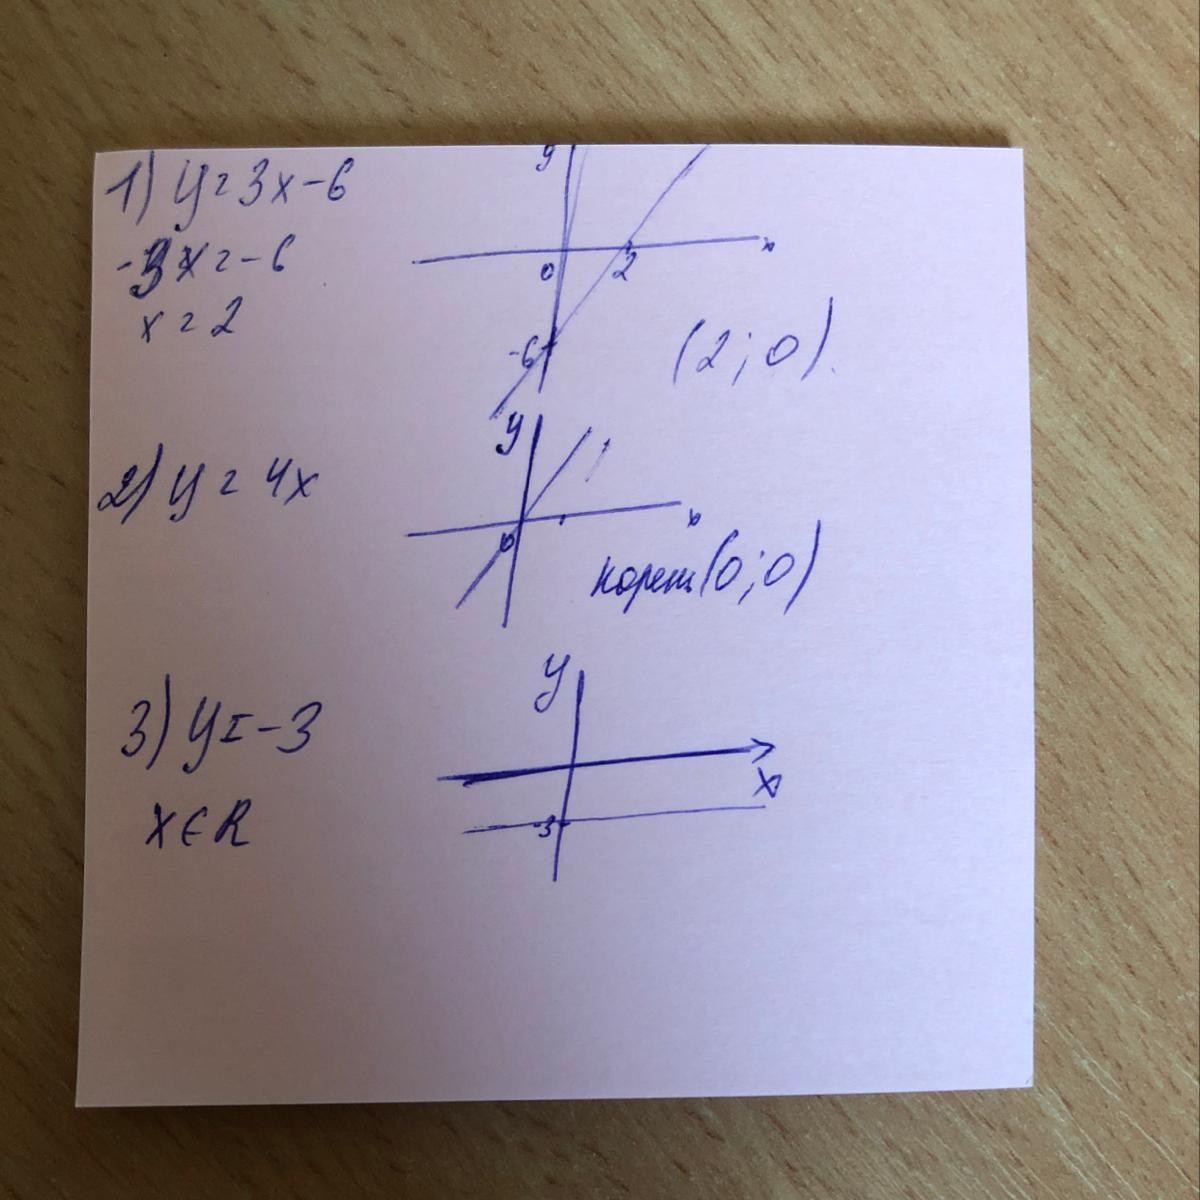 1) y = 3x - 6
-3x = -6
x = 2
y
x
0
2
-6
(2; 0).
2) y = 4x
y
x
0
корень (0; 0)
3) y = -3
x ∈ R
y
x
-3